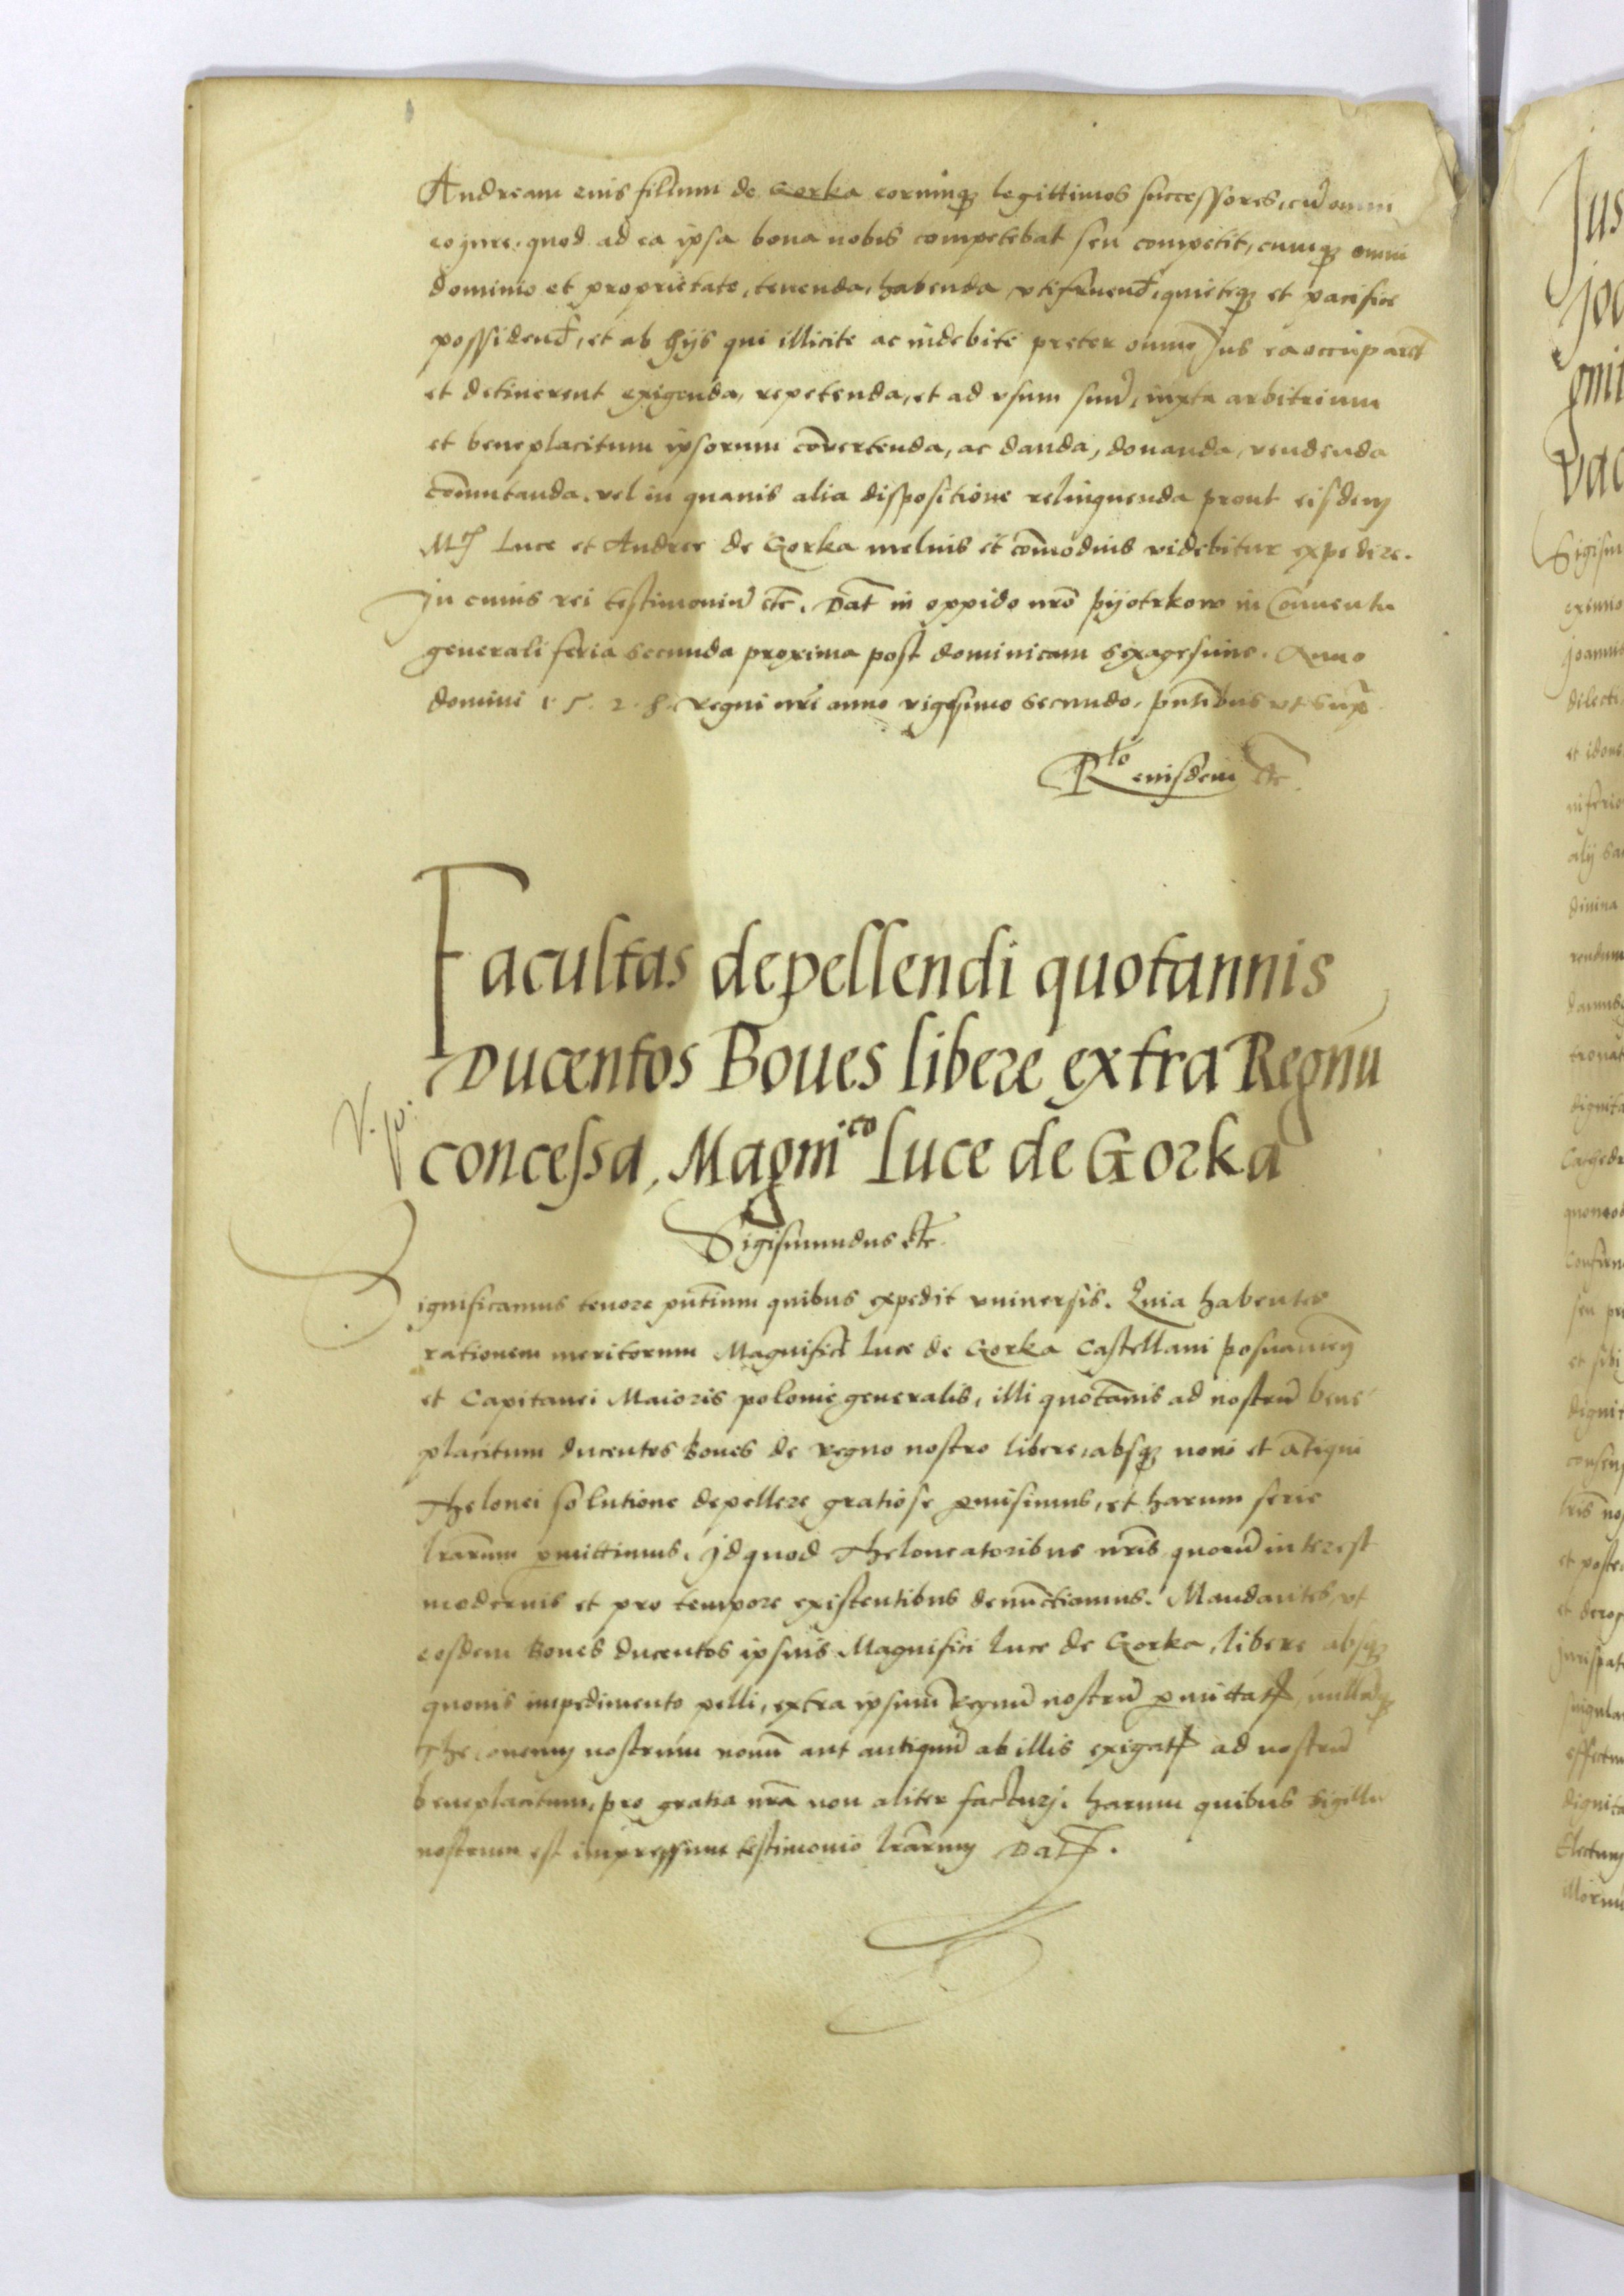 Andream eius filium de Gorka eorumq legittimos successores, cū omni
eo jure, quod ad ea ipsa bona nobis competebat seu competit, cumq omni
dominio et proprietate, tenenda, habenda, vtifruend, quieteq et pacifice
possidend, et ab hijs qui illicite ac indebite preter omne Jus ea occuparēt
et detinerent exigenda, repetenda, et ad vsum suū, iuxta arbitrium
et beneplacitum ipsorum cōvertenda, ac danda, donanda, vendenda
cōmutanda, vel in quauis alia dispositione relinquenda prout eisdem
Mcis Luce et Andree de Gorka melius et cōmodius videbitur expedire.
In cuius rei testimoniū etc. Dat in oppido nrō pijotrkow in Conuentu
generali feria secunda proxima post dominicam sexagesime. Anno
domini 1528. Regni nrī anno vigesimo secundo, pntībus vt supra
Rto eiusdem etc.
Facultas depellendi quotannis
Ducentos Boues libere extra Regnū
concessa, Magnico Luce de Gorka
Sigismundus etc.
Significamus tenore pntium quibus expedit vniuersis. Quia habentes
rationem meritorum Magnifici Luce de Gorka Castellani posnanien
et Capitanei Maioris polonie generalis, illi quotānis ad nostrū bene
placitum ducentos Boues de regno nostro libere, absq noui et ātiqui
Thelonei solutione depellere gratiose pmisimus, et harum serie
lrārum pmittimus. Id quod Theloneatoribus nrīs quorū interest
modernis et pro tempore existentibus denūctiamus. Mandantes, vt
eosdem Boues ducentos ipsius Magnifici Luce de Gorka, libere absq
quouis impedimento pelli, extra ipsum Regnū nostrū pmittat, nullūq
Theloneum nostrum nouū aut antiquū ab illis exigat ad nostrū
beneplacitum, pro gratia nrā non aliter facturj. harum quibus sigillū
nostrum est impressum testimonio lrārum Dat.